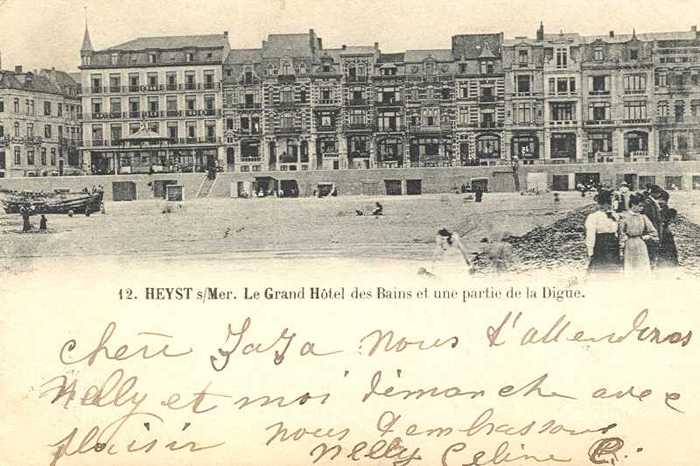 12. HEYST s/Mer. Le Grand Hôtel des Bains et une partie de la Digue.
cherie Zaza nous t'attenderas
Nelly et moi dimanche avec
plaisir nous t'embrassons
Nelly Celine R.